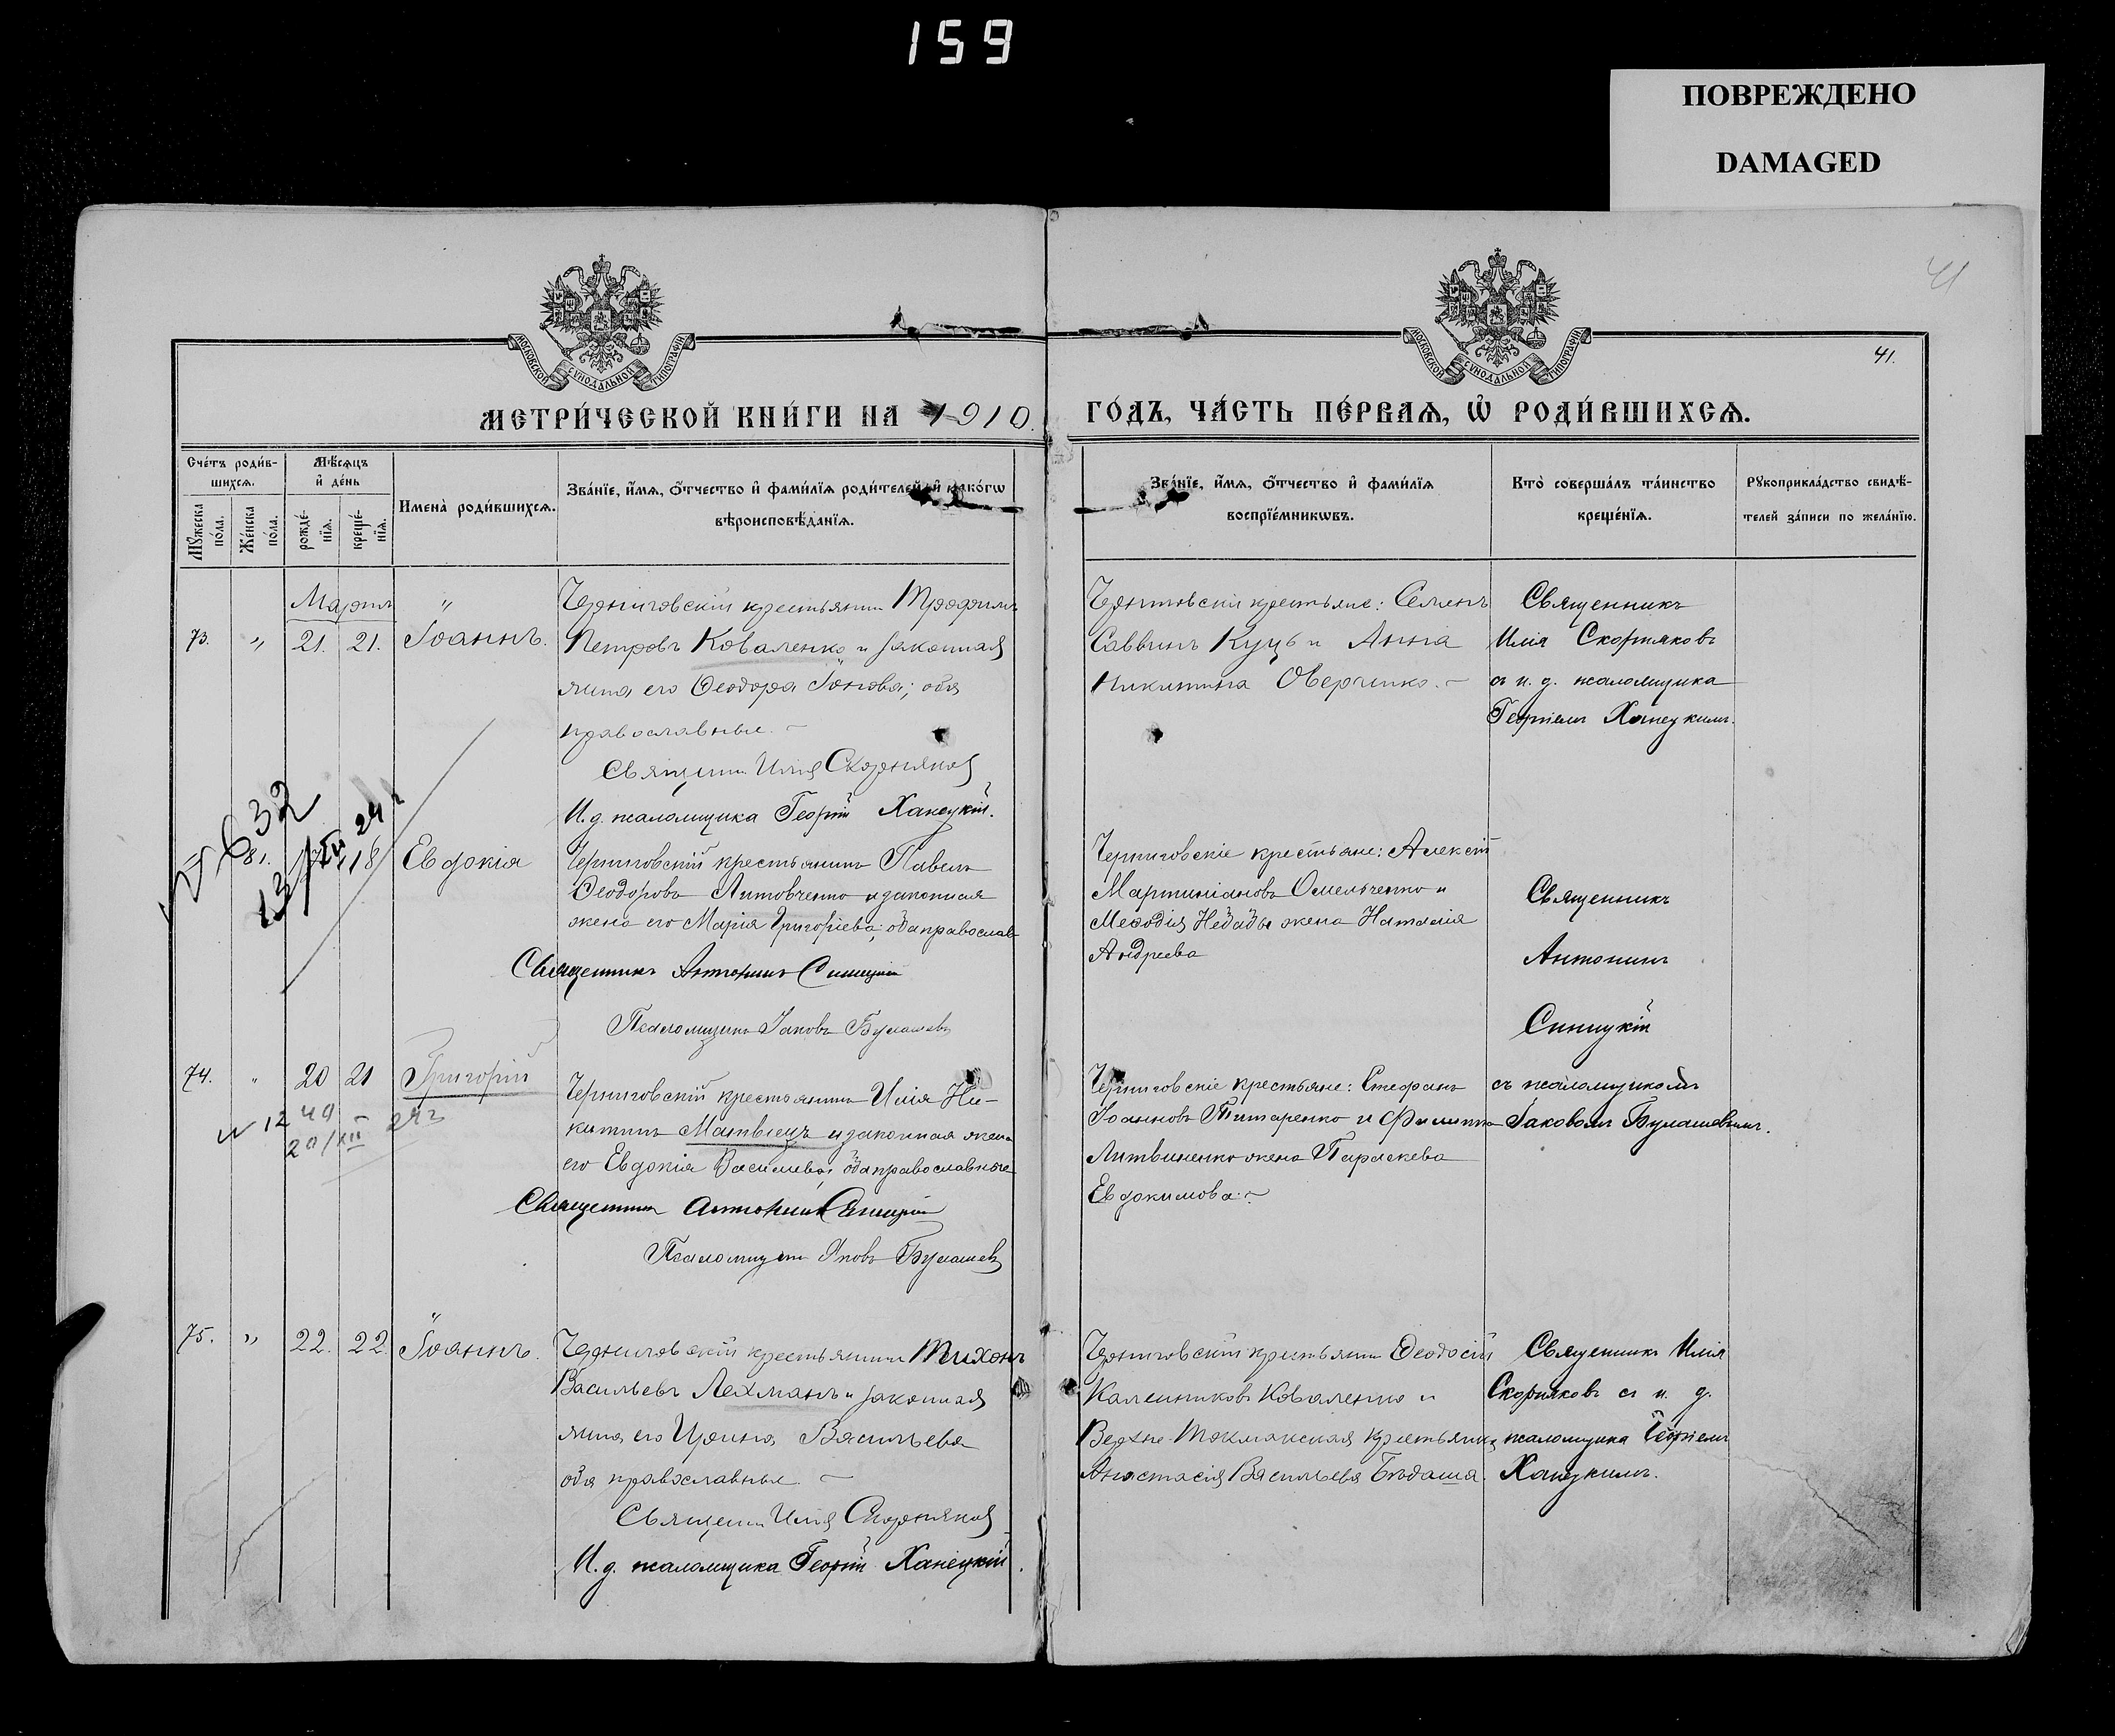 159
ПОВРЕЖДЕНО
DAMAGED
41
41.
МОСКОВСКОЙ СУНОДАЛЬНОЙ ТИПОГРАФІИ
МОСКОВСКОЙ СУНОДАЛЬНОЙ ТИПОГРАФІИ
МЕТРИ́ЧЕСКОЙ КНИ́ГИ НА 1910.
ГО́ДЪ, ЧА́СТЬ ПЕ́РВАѦ, Ѡ҆ РОДИ́ВШИХСѦ.
Сче́тъ роди́в-
шихсѧ.
Мѣ́сѧцъ
и҆ де́нь
Мꙋ́жеска по́ла.
Же́нска по́ла.
рожде́-нїѧ.
креще́-нїѧ.
Имена̀ роди́вшихсѧ.
Зва́нїе, и҆́мѧ, ѻ҆́тчество и҆ фами́лїѧ роди́телей, и҆ како́гѡ
вѣроисповѣ́данїѧ.
Зва́нїе, и҆́мѧ, ѻ҆́тчество и҆ фами́лїѧ
воспрїе́мникѡвъ.
Кто̀ соверша́лъ та́инство
креще́нїѧ.
Рꙋкоприкла́дство свидѣ́-
телей за́писи по жела́нїю.
Мартъ "
73. " 21. 21. Іоаннъ.
Черниговскій крестьянинъ Трофимъ
Петровъ Коваленко и законная
жена его Ѳеодора Іонова; оба
православные. –
Священ. Илія Скорняковъ
И. д. псаломщика Георгій Ханецкій.
Черниговскіе крестьяне: Семенъ
Саввинъ Куць и Анна
Никитина Оверченко. –
Священникъ
Илія Скорняковъ
съ и. д. псаломщика
Георгіемъ Ханецкимъ.
№ 632
13/XII 24 г
81. 18 Евдокія
Черниговскій крестьянинъ Павелъ
Ѳеодоровъ Литовченко и законная
жена его Марія Григоріева; оба православ
Священникъ Антонинъ Синицкій
Псаломщикъ Іаковъ Булашевъ
Черниговскіе крестьяне: Алексій
Мартиніановъ Омельченко и
Меѳодія Недады жена Наталія
Андреева
Священникъ
Антонинъ
Синицкій
74. " 20 21 Григорій
№ 1249 – 24 г
20/XII
Черниговскій крестьянинъ Илія Ни-
китинъ Матвіецъ и законная жена
его Евдокія Васильева; оба православные
Священникъ Антонинъ Синицкій
Псаломщикъ Яковъ Булашевъ
Черниговскіе крестьяне: Стефанъ
Іоанновъ Титаренко и Филиппа
Литвиненко жена Параскева
Евдокимова. –
съ псаломщикомъ
Іаковомъ Булашевымъ.
75. " 22. 22. Іоаннъ.
Черниговскій крестьянинъ Тихонъ
Васильевъ Лехманъ и законная
жена его Ирина Васильева
оба православные. –
Священ. Илія Скорняковъ
И. д. псаломщика Георгій Ханецкій.
Черниговскій крестьянинъ Ѳеодосій
Калениковъ Коваленко и
Верхне-Токмакская крестьянка
Анастасія Васильева Бѣдаша.
Священникъ Илія
Скорняковъ съ и. д.
псаломщика Георгіемъ
Ханецкимъ.